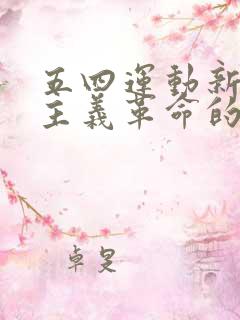 五四運動新
主義革命的
卓旻